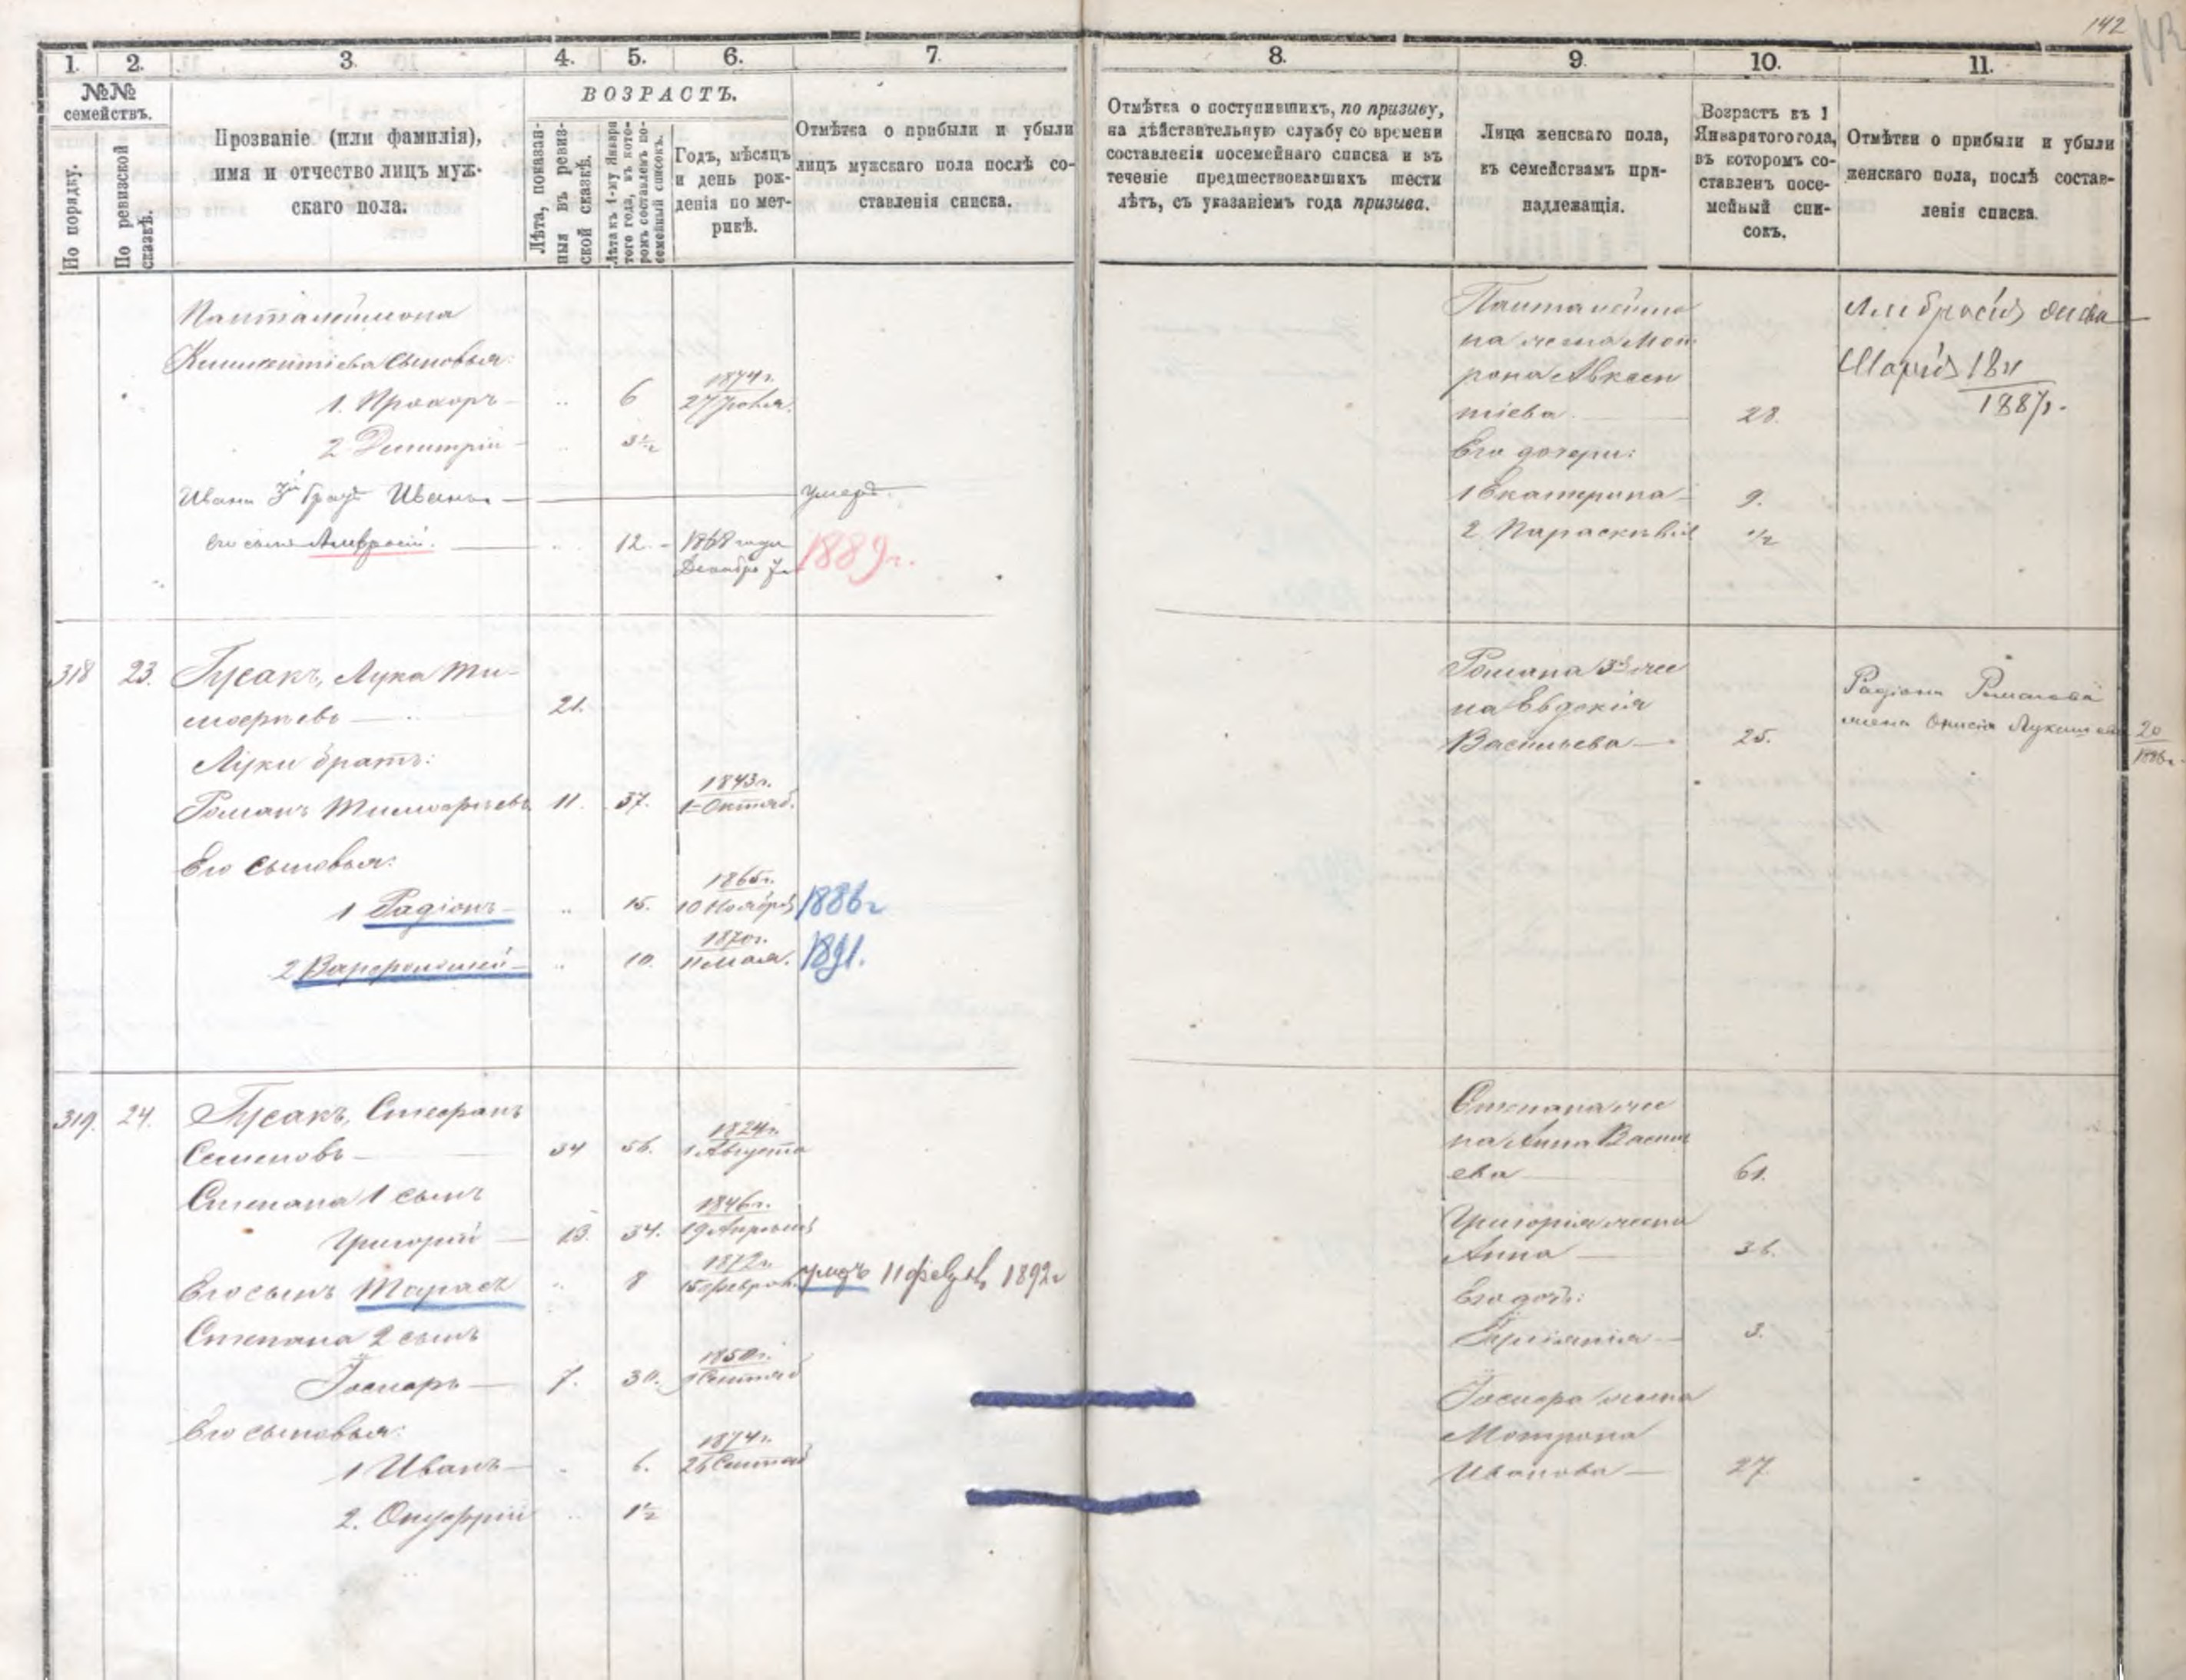 142
1. 2. 3. 4. 5. 6. 7.
№№ семействъ.
По порядку.
По ревизской сказкѣ.
Прозваніе (или фамилія),
имя и отчество лицъ муж-
скаго пола.
ВОЗРАСТЪ.
Лѣта, показан-
ныя въ ревиз-
ской сказкѣ.
Лѣта къ 1-му Января
того года, въ кото-
ромъ составленъ по-
семейный списокъ.
Годъ, мѣсяцъ
и день рож-
денія по мет-
рикѣ.
Отмѣтка о прибыли и убыли
лицъ мужскаго пола послѣ со-
ставленія списка.
Пантелеймона
сыновья:
1. Прохоръ 6 1874г.
27
2 Димитрій 3½
Ивана 3й братъ Иванъ умеръ.
его сынъ Амвросій. 12. 1868 года
Декабря 7 1889г.
318 23. Гусакъ, Лука Ти-
моѳеевъ 21.
Луки братъ:
Романъ Тимоѳеевъ 11. 37. 1843г.
1 Октяб.
Его сыновья:
1 Радіонъ 15. 1865г.
10 Ноября 1886г
2 Варфоломей 10. 1870г.
11 Мая. 1891.
319. 24. Гусакъ, Стефанъ
Семеновъ 34 56. 1824г.
1 Августа
Степана 1 сынъ
Григорій 13. 34. 1846г.
19 Апрѣля
Его сынъ Тарасъ 8 1872г.
15 Феврал. умеръ 11 февраля 1892г
Степана 2 сынъ
Госпоръ 7. 30. 1850г.
Сентяб
Его сыновья:
1 Иванъ 6. 1874г.
26 Сентяб
2. Онуфрій 1½
8. 9. 10. 11.
Отмѣтка о поступившихъ, по призыву,
на дѣйствительную службу со времени
составленія посемейнаго списка и въ
теченіе предшествовавшихъ шести
лѣтъ, съ указаніемъ года призыва.
Лица женскаго пола,
къ семействамъ при-
надлежащія.
Возрастъ въ 1
Января того года,
въ которомъ со-
ставленъ посе-
мейный спи-
сокъ.
Отмѣтки о прибыли и убыли
женскаго пола, послѣ состав-
ленія списка.
Пантелеймо
на жена Мот
рона Авксен
тіева 28.
Его дочери:
1 Екатерина 9.
2 Параскевія ½
Амвросія жена
Марія 18
1887г.
Романа 3я же
на Евдокія
Васильева 25.
Радіона Романова
жена Онисія 20
1886г.
Степана же
на Анна Васил
ева 61.
Григорія жена
Анна 36.
Его дочь:
3.
Госпора жена
Мотрона
Иванова 27